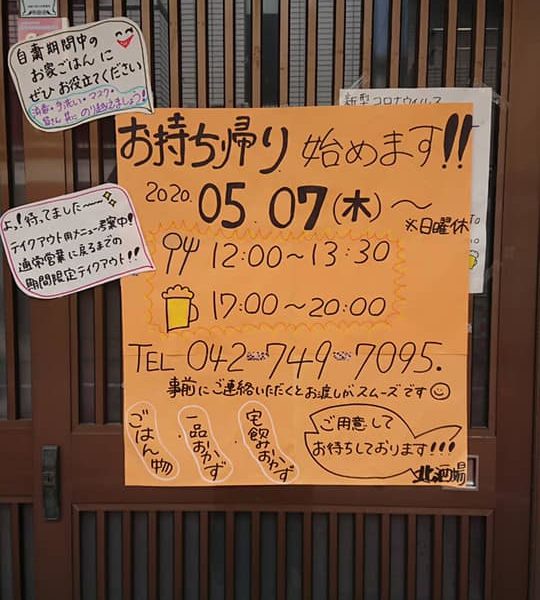 自粛期間中の
お家ごはんに
ぜひお役立てください
消毒・手洗い・マスク・
皆さん共にのり越えましょう!
新型コロナウイルス
お持ち帰り 始めます!!
2020. 05.07(木)〜
※日曜休
よっ!待ってました〜
テイクアウト用メニュー考案中!
通常営業に戻るまでの
期間限定テイクアウト!!
12:00〜13:30
17:00〜20:00
TEL 042-749-7095.
事前にご連絡いただくとお渡しがスムーズです
ごはん物
一品おかず
宅飲みおかず
ご用意して
お待ちしております!!!
北の酒場